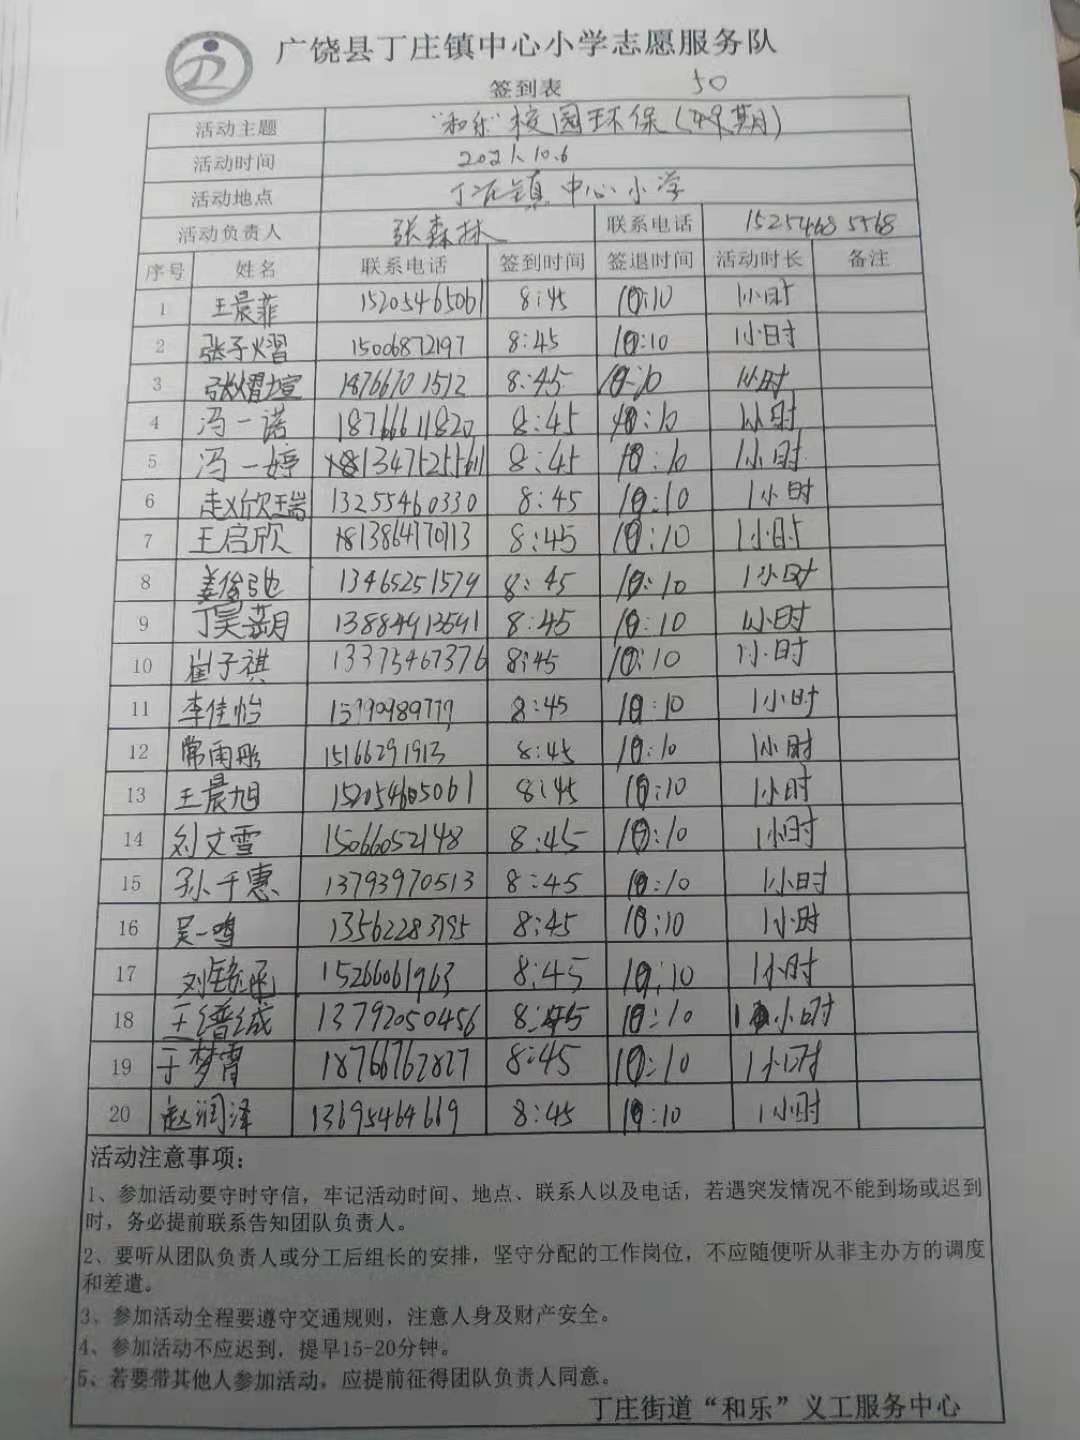 广饶县丁庄镇中心小学志愿服务队
签到表 50
活动主题 “和乐”校园环保(48期)
活动时间 2021.10.6
活动地点 丁庄镇中心小学
活动负责人 张森林 联系电话 15254685568
序号 姓名 联系电话 签到时间 签退时间 活动时长 备注
1 王晨菲 15205465061 8:45 10:10 1小时
2 张子熠 15006872197 8:45 10:10 1小时
3 18766701512 8:45 10:10 1小时
4 冯一诺 18766611820 8:45 10:10 1小时
5 冯一婷 8:45 10:10 1小时
6 赵欣瑞 13255460330 8:45 10:10 1小时
7 王启欣 13864770113 8:45 10:10 1小时
8 姜俊驰 13465251579 8:45 10:10 1小时
9 13884913591 8:45 10:10 1小时
10 崔子祺 13375467376 8:45 10:10 1小时
11 李佳怡 8:45 10:10 1小时
12 常雨彤 15166291913 8:45 10:10 1小时
13 王晨旭 15205465061 8:45 10:10 1小时
14 刘文雪 15066052148 8:45 10:10 1小时
15 孙千惠 13793970513 8:45 10:10 1小时
16 吴一鸣 13562283795 8:45 10:10 1小时
17 15266061963 8:45 10:10 1小时
18 13792050456 8:45 10:10 1小时
19 于梦霄 18766762827 8:45 10:10 1小时
20 赵润泽 13695464669 8:45 10:10 1小时
活动注意事项:
1、参加活动要守时守信,牢记活动时间、地点、联系人以及电话,若遇突发情况不能到场或迟到
时,务必提前联系告知团队负责人。
2、要听从团队负责人或分工后组长的安排,坚守分配的工作岗位,不应随便听从非主办方的调度
和差遣。
3、参加活动全程要遵守交通规则,注意人身及财产安全。
4、参加活动不应迟到,提早15-20分钟。
5、若要带其他人参加活动,应提前征得团队负责人同意。
丁庄街道“和乐”义工服务中心